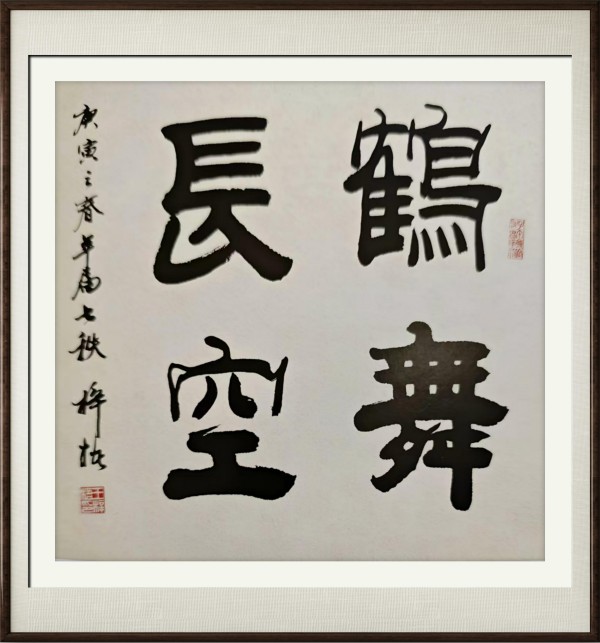 鶴舞
長空
庚寅之春年届七秩